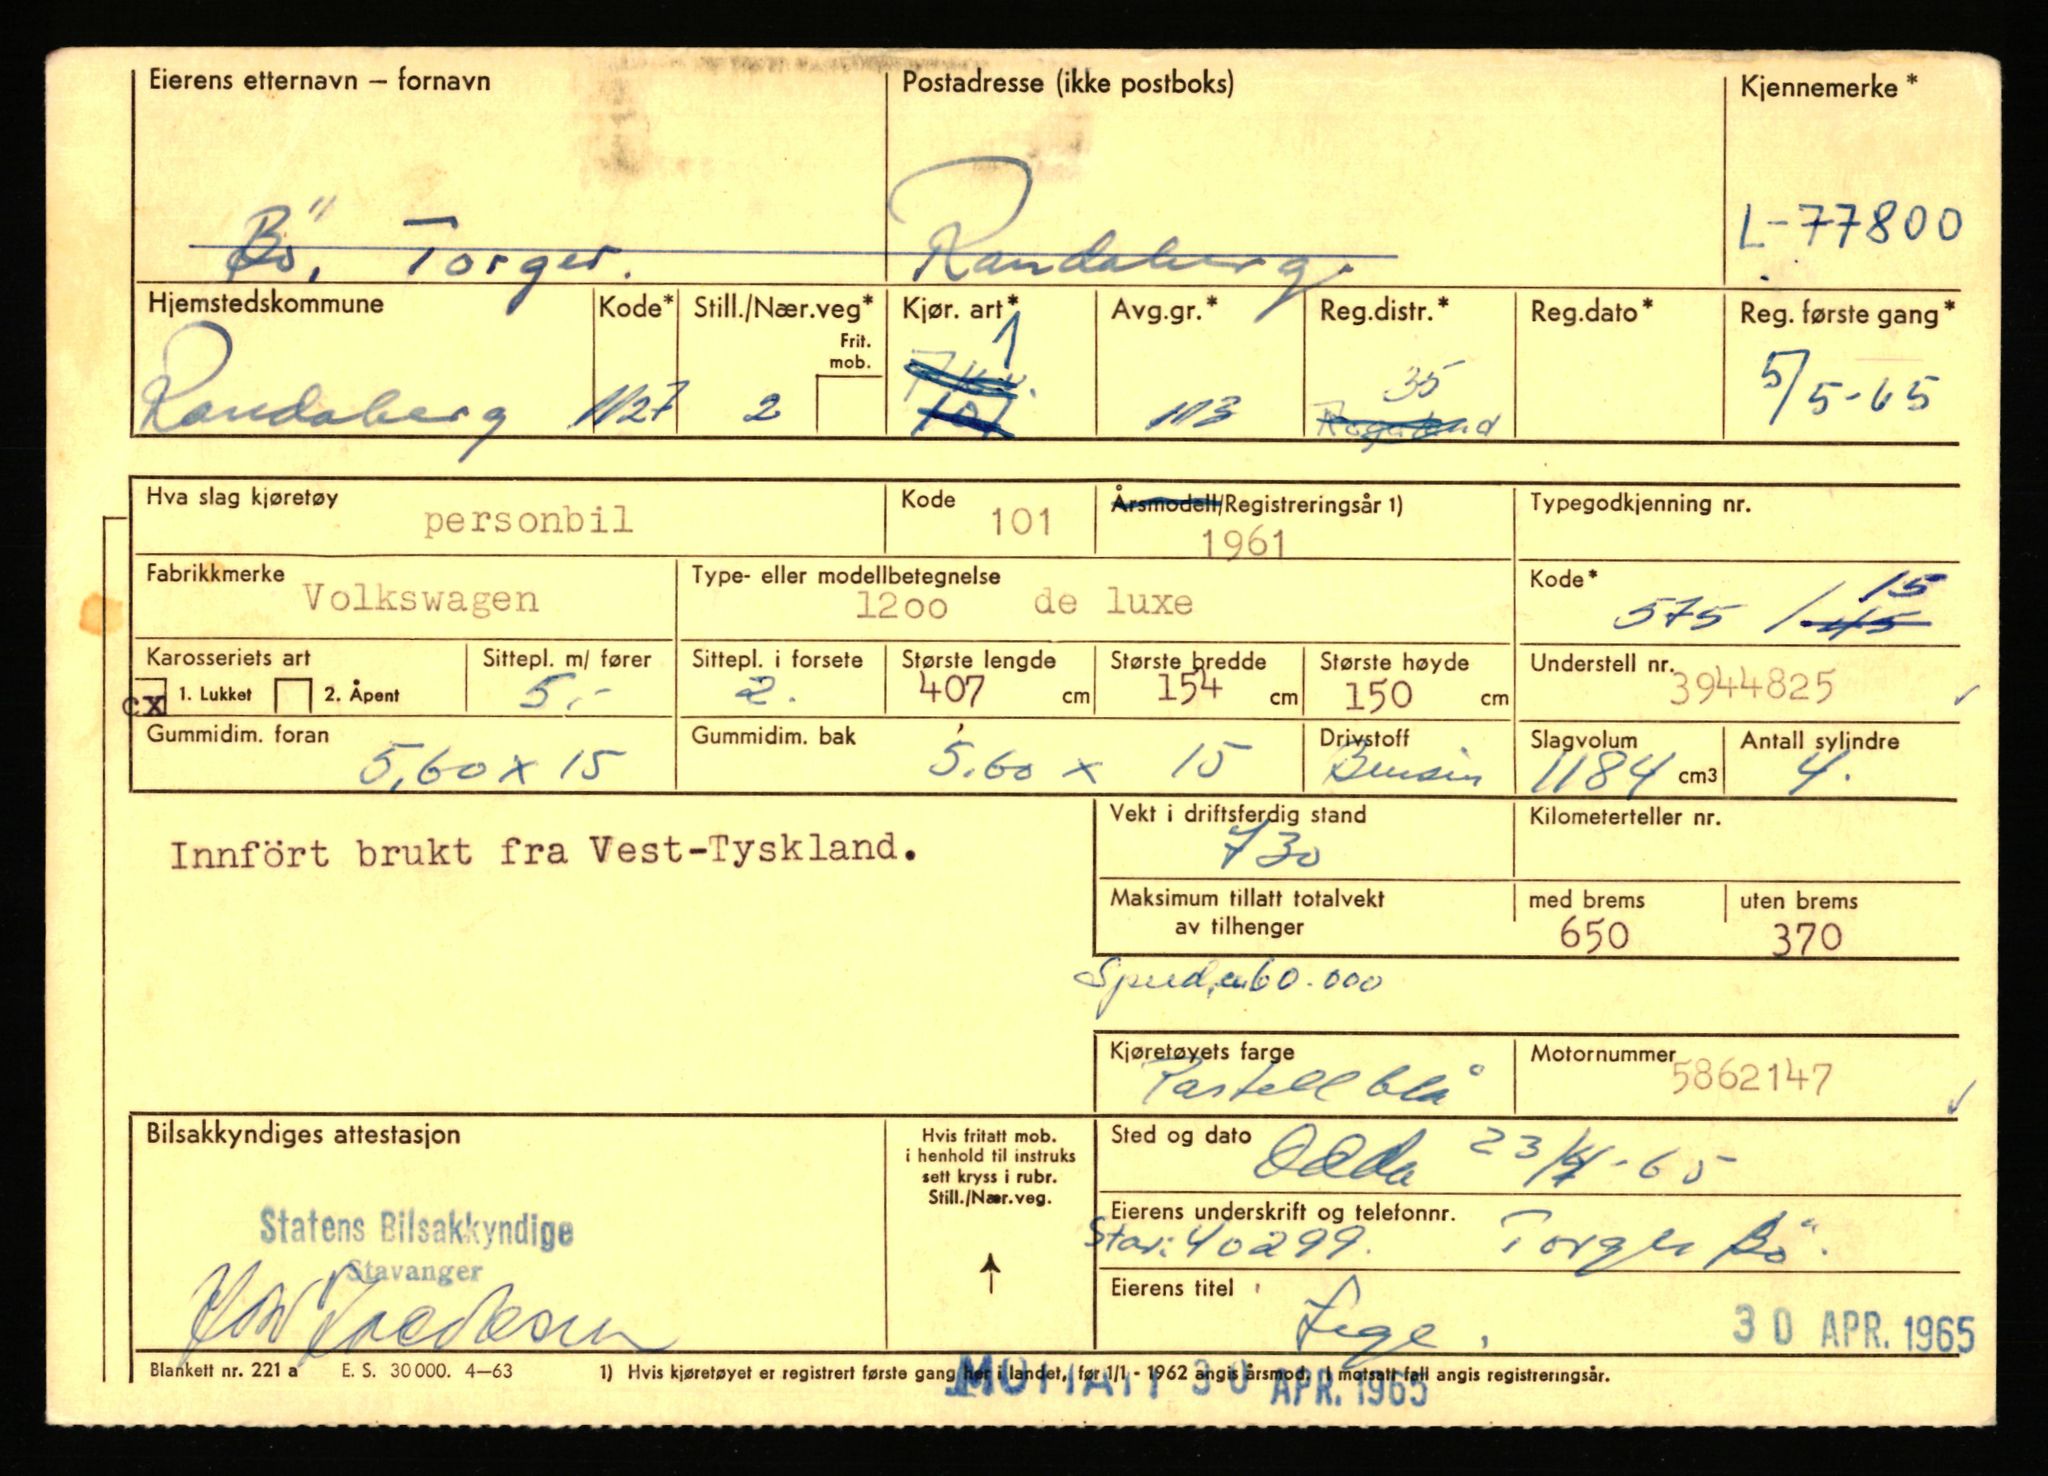 Eierens etternavn – fornavn Postadresse (ikke postboks) Kjennemerke*
Bö, Torger. Randaberg. L-77800
Hjemstedskommune Kode* Still./Nær.veg* Kjør. art* Avg.gr.* Reg.distr.* Reg.dato* Reg. første gang*
Frit. mob.
Randaberg 1127 2 1 101 113 35 Rogaland 5/5-65
Hva slag kjøretøy Kode Årsmodell/Registreringsår 1) Typegodkjenning nr.
personbil 101 1961
Fabrikkmerke Type- eller modellbetegnelse Kode*
Volkswagen 1200 de luxe 575 / 45 15
Karosseriets art Sittepl. m/ fører Sittepl. i forsete Største lengde Største bredde Største høyde Understell nr.
cx 1. Lukket 2. Åpent 5.- 2. 407 cm 154 cm 150 cm 3944825
Gummidim. foran Gummidim. bak Drivstoff Slagvolum Antall sylindre
5,60 x 15 5.60 x 15 Bensin 1184 cm3 4.
Vekt i driftsferdig stand Kilometerteller nr.
730
Innfört brukt fra Vest-Tyskland.
Maksimum tillatt totalvekt av tilhenger med brems uten brems
650 370
60.000
Kjøretøyets farge Motornummer
Pastell blå 5862147
Bilsakkyndiges attestasjon
Hvis fritatt mob.
i henhold til instruks
sett kryss i rubr.
Still./Nær.veg.
Sted og dato Odda 23/4-65
Eierens underskrift og telefonnr.
Stav: 40299. Torger Bö.
Statens Bilsakkyndige
Stavanger
Eierens titel
30 APR. 1965
Blankett nr. 221 a E. S. 30000. 4–63 1) Hvis kjøretøyet er registrert første gang her i landet, før 1/1 - 1962 angis årsmod. I motsatt fall angis registreringsår.
MOTTATT 30 APR. 1965